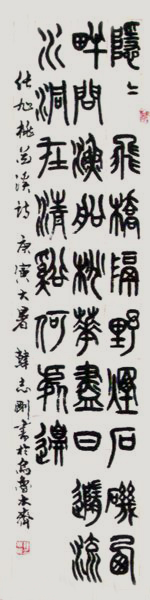 隱〻飛橋隔野煙石磯西
畔問漁船桃華盡日隨流
水洞在清谿何處邊
張旭桃花溪詩 庚寅大暑 韓志剛書於烏魯木齊